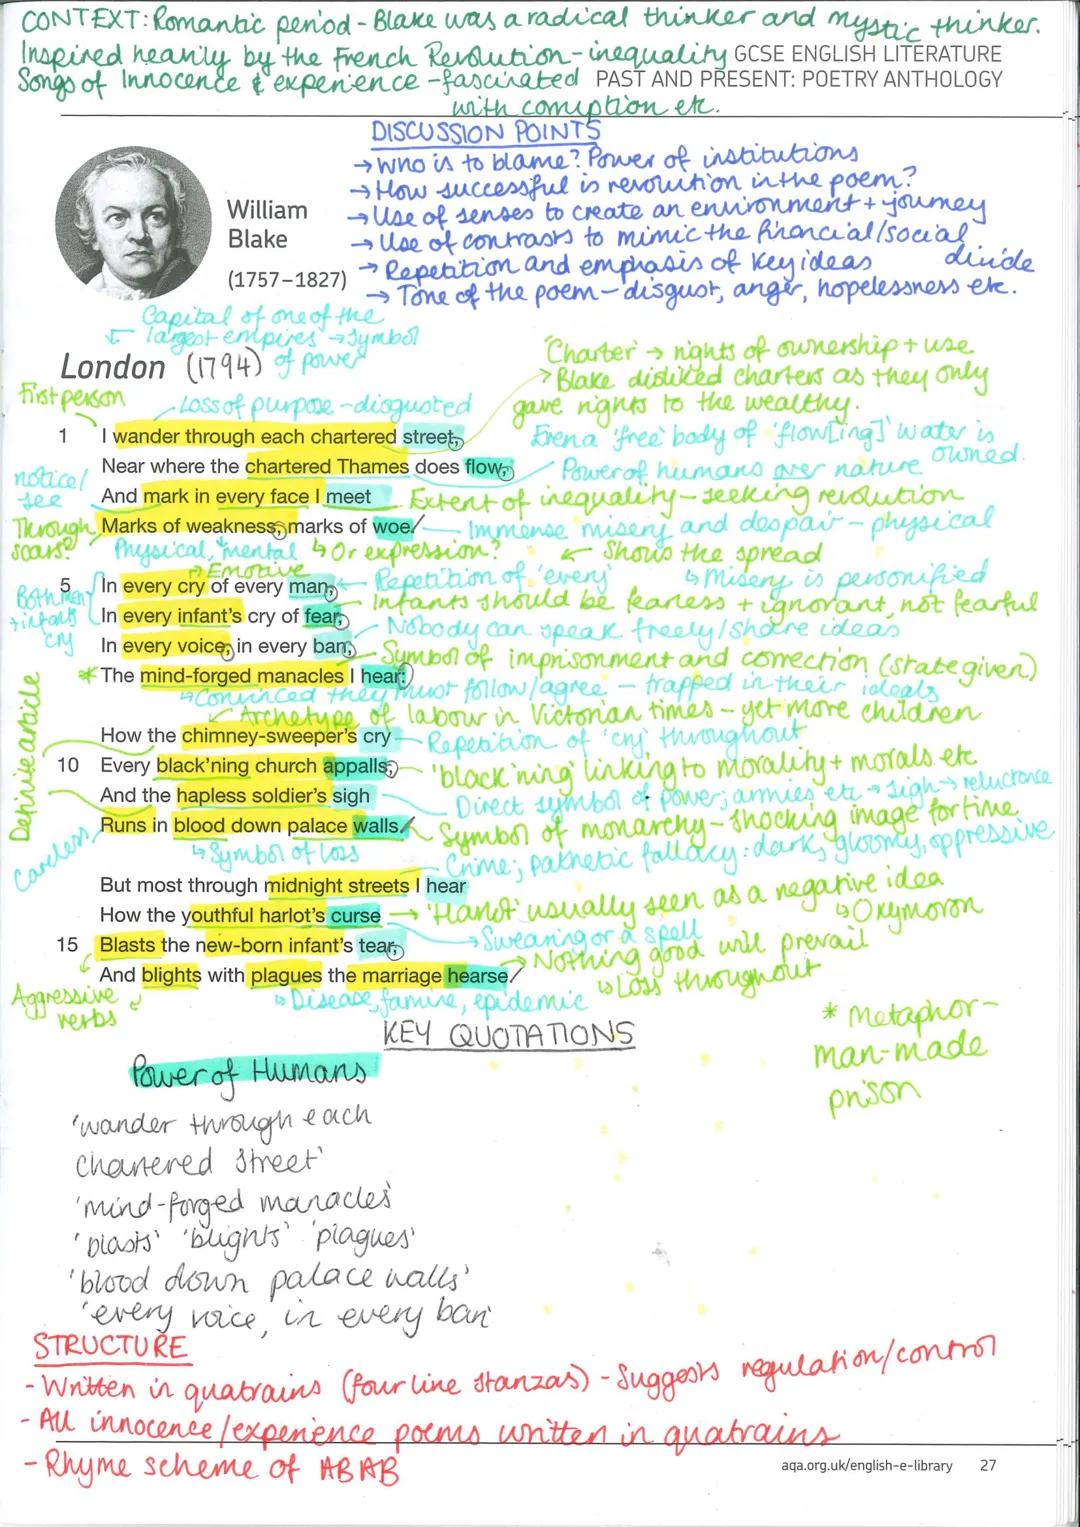 CONTEXT: Romantic period - Blake was a radical thinker and mystic thinker.
Inspired heavily by the French Revolution - inequality
GCSE ENGLISH LITERATURE
Songs of Innocence & experience - fascinated
PAST AND PRESENT: POETRY ANTHOLOGY
with corruption etc.
DISCUSSION POINTS
→ Who is to blame? Power of institutions
→ How successful is revolution in the poem?
→ Use of senses to create an environment + journey
→ Use of contrasts to mimic the financial/social divide
→ Repetition and emphasis of key ideas
→ Tone of the poem - disgust, anger, hopelessness etc.
William
Blake
(1757–1827)
Capital of one of the
largest empires → Symbol
of power
London (1794)
'Charter' → rights of ownership + use
→ Blake disliked charters as they only
gave rights to the wealthy.
First person
Loss of purpose - disgusted
1 I wander through each chartered street,
Even a 'free' body of 'flow[ing]' water is
owned.
Near where the chartered Thames does flow,
Power of humans over nature
notice/
see
And mark in every face I meet
Extent of inequality - seeking revolution
Through
scars?
Marks of weakness, marks of woe.
Immense misery and despair - physical
Physical, + mental
↳ Or expression?
← Shows the spread
→ Emotive
5 In every cry of every man,
Repetition of 'every'
↳ Misery is personified
Both men
+ infants
cry
In every infant's cry of fear,
Infants should be fearless + ignorant, not fearful
In every voice, in every ban,
Nobody can speak freely/share ideas
Symbol of imprisonment and correction (state given)
* The mind-forged manacles I hear:
↳ Convinced they must follow/agree - trapped in their ideals
Archetype of labour in Victorian times - yet more children
Definite article
How the chimney-sweeper's cry
Repetition of 'cry' throughout
10 Every black'ning church appalls,
'black'ning' linking to morality + morals etc
And the hapless soldier's sigh
Direct symbol of power; armies etc → sigh → reluctance
Runs in blood down palace walls.
Symbol of monarchy - shocking image for time
Careless
↳ Symbol of loss
Crime; pathetic fallacy: dark, gloomy, oppressive
But most through midnight streets I hear
How the youthful harlot's curse
→ 'Harlot' usually seen as a negative idea
↳ Oxymoron
→ Swearing or a spell
15 Blasts the new-born infant's tear,
→ Nothing good will prevail
And blights with plagues the marriage hearse.
↳ Loss throughout
Aggressive
verbs
↳ Disease, famine, epidemic
* Metaphor -
man-made
prison
KEY QUOTATIONS
Power of Humans
'wander through each
chartered street'
'mind-forged manacles'
'blasts' 'blights' 'plagues'
'blood down palace walls'
'every voice, in every ban'
STRUCTURE
- Written in quatrains (four line stanzas) - Suggests regulation/control
- All innocence/experience poems written in quatrains
- Rhyme scheme of ABAB
aqa.org.uk/english-e-library 27